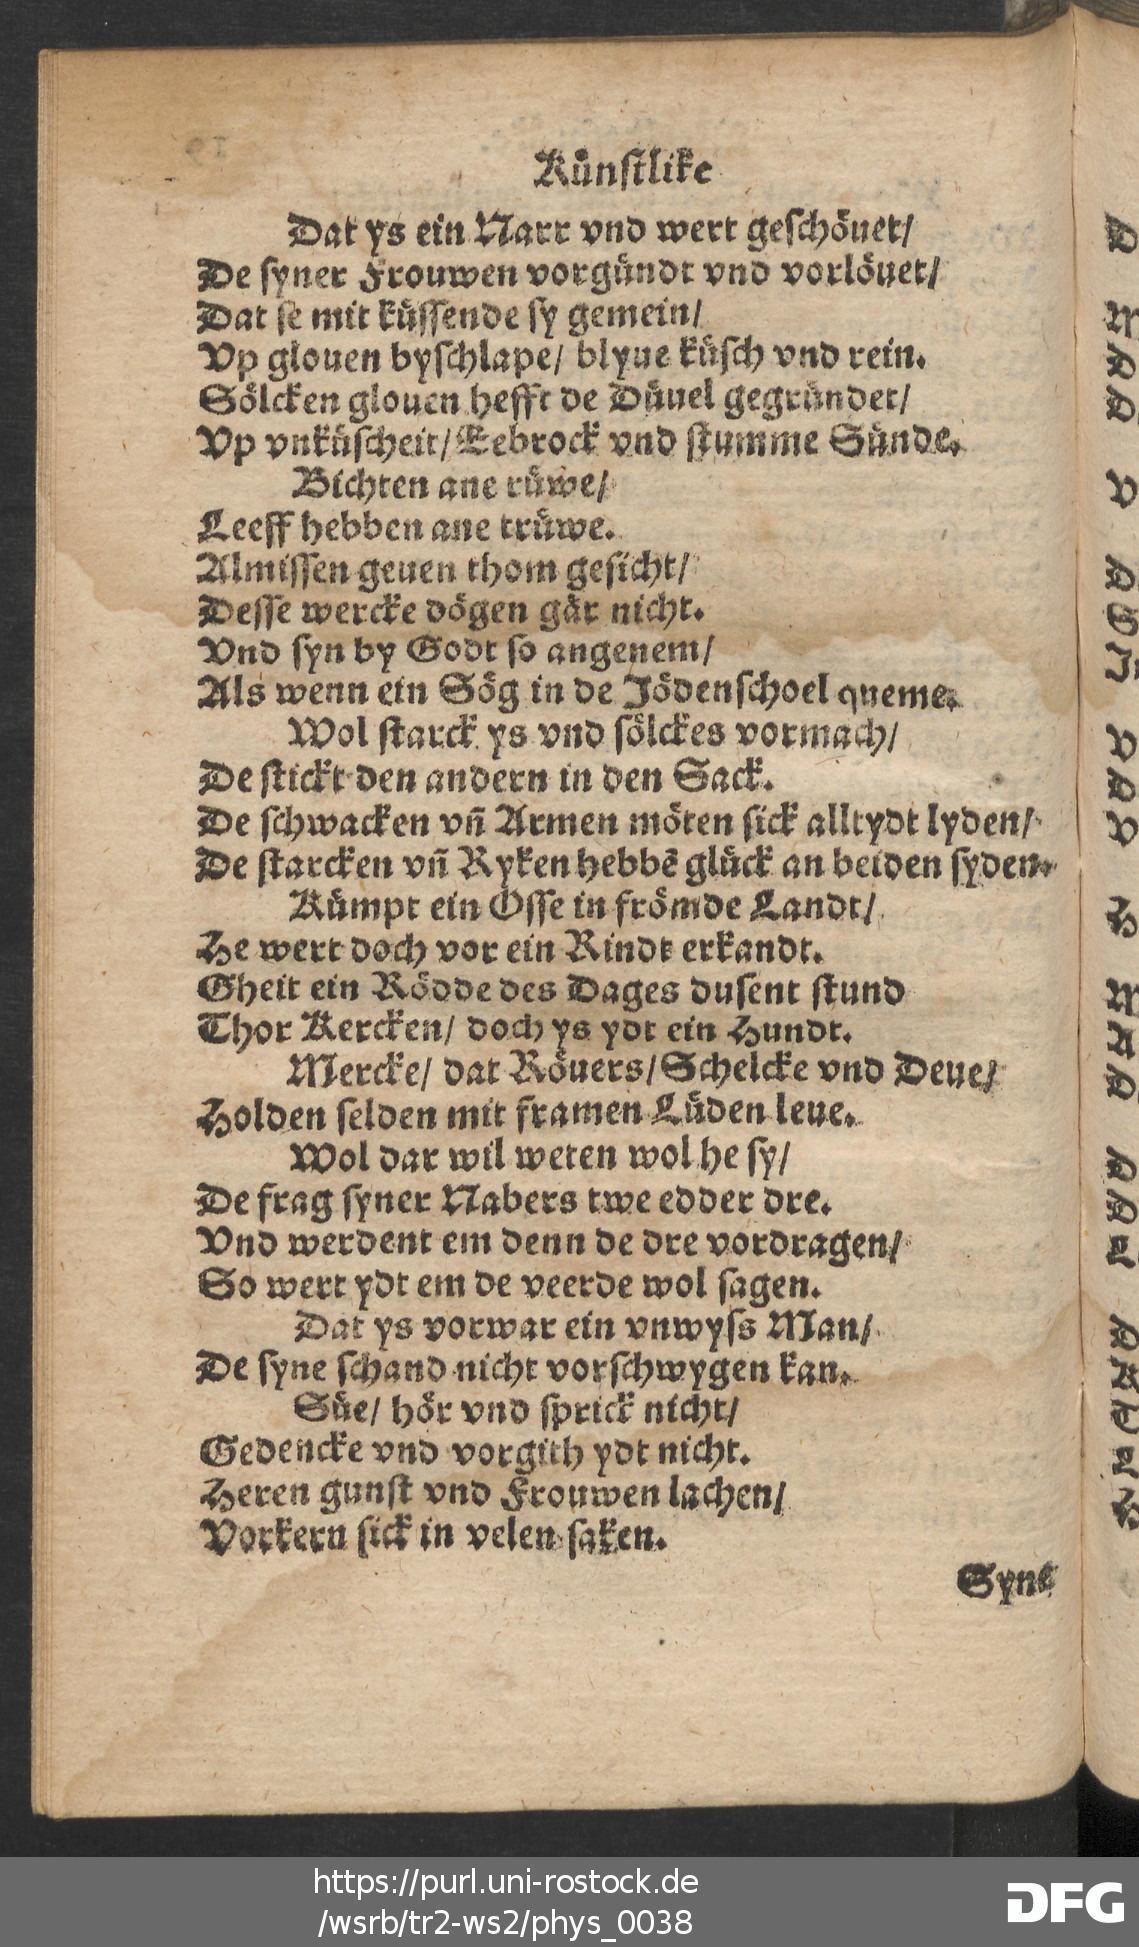 Künstlike
Dat ys ein Narr vnd wert geschöuet/
De syner Frouwen vorgündt vnd vorlöuet/
Dat se mit küssende sy gemein/
Vp glouen byschlape/ blyue küsch vnd rein.
Sölcken glouen hefft de Düuel gegründet/
Vp vnküscheit/ Eebrock vnd stumme Sünde.
Bichten ane rüwe/
Leeff hebben ane trüwe.
Almissen geuen thom gesicht/
Desse wercke dögen gär nicht.
Vnd syn by Godt so angenem/
Als wenn ein Sög in de Jödenschoel queme.
Wol starck ys vnd sölckes vormach/
De stickt den andern in den Sack.
De schwacken vñ Armen möten sick alltydt lyden/
De starcken vñ Ryken hebbē glück an beiden syden.
Kümpt ein Osse in frömde Landt/
He wert doch vor ein Rindt erkandt.
Gheit ein Rödde des Dages dusent stund
Thor Kercken/ doch ys ydt ein Hundt.
Mercke/ dat Röuers/ Schelcke vnd Deue/
Holden selden mit framen Lüden leue.
Wol dar wil weten wol he sy/
De frag syner Nabers twe edder dre.
Vnd werdent em denn de dre vordragen/
So wert ydt em de veerde wol sagen.
Dat ys vorwar ein vnwyss Man/
De syne schand nicht vorschwygen kan.
Süe/ hör vnd sprick nicht/
Gedencke vnd vorgith ydt nicht.
Heren gunst vnd Frouwen lachen/
Vorkern sick in velen saken.
Syne
https://purl.uni-rostock.de
/wsrb/tr2-ws2/phys_0038
DFG